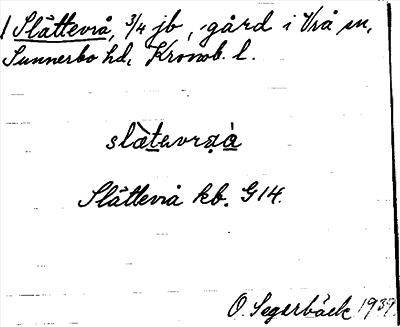 1 Slättevrå, 3/4 jb, gård i Vrå sn,
Sunnerbo hd, Kronob. l.
slä̀tevrạà
Slättevrå kb. G14.
O. Segerbäck 1939.